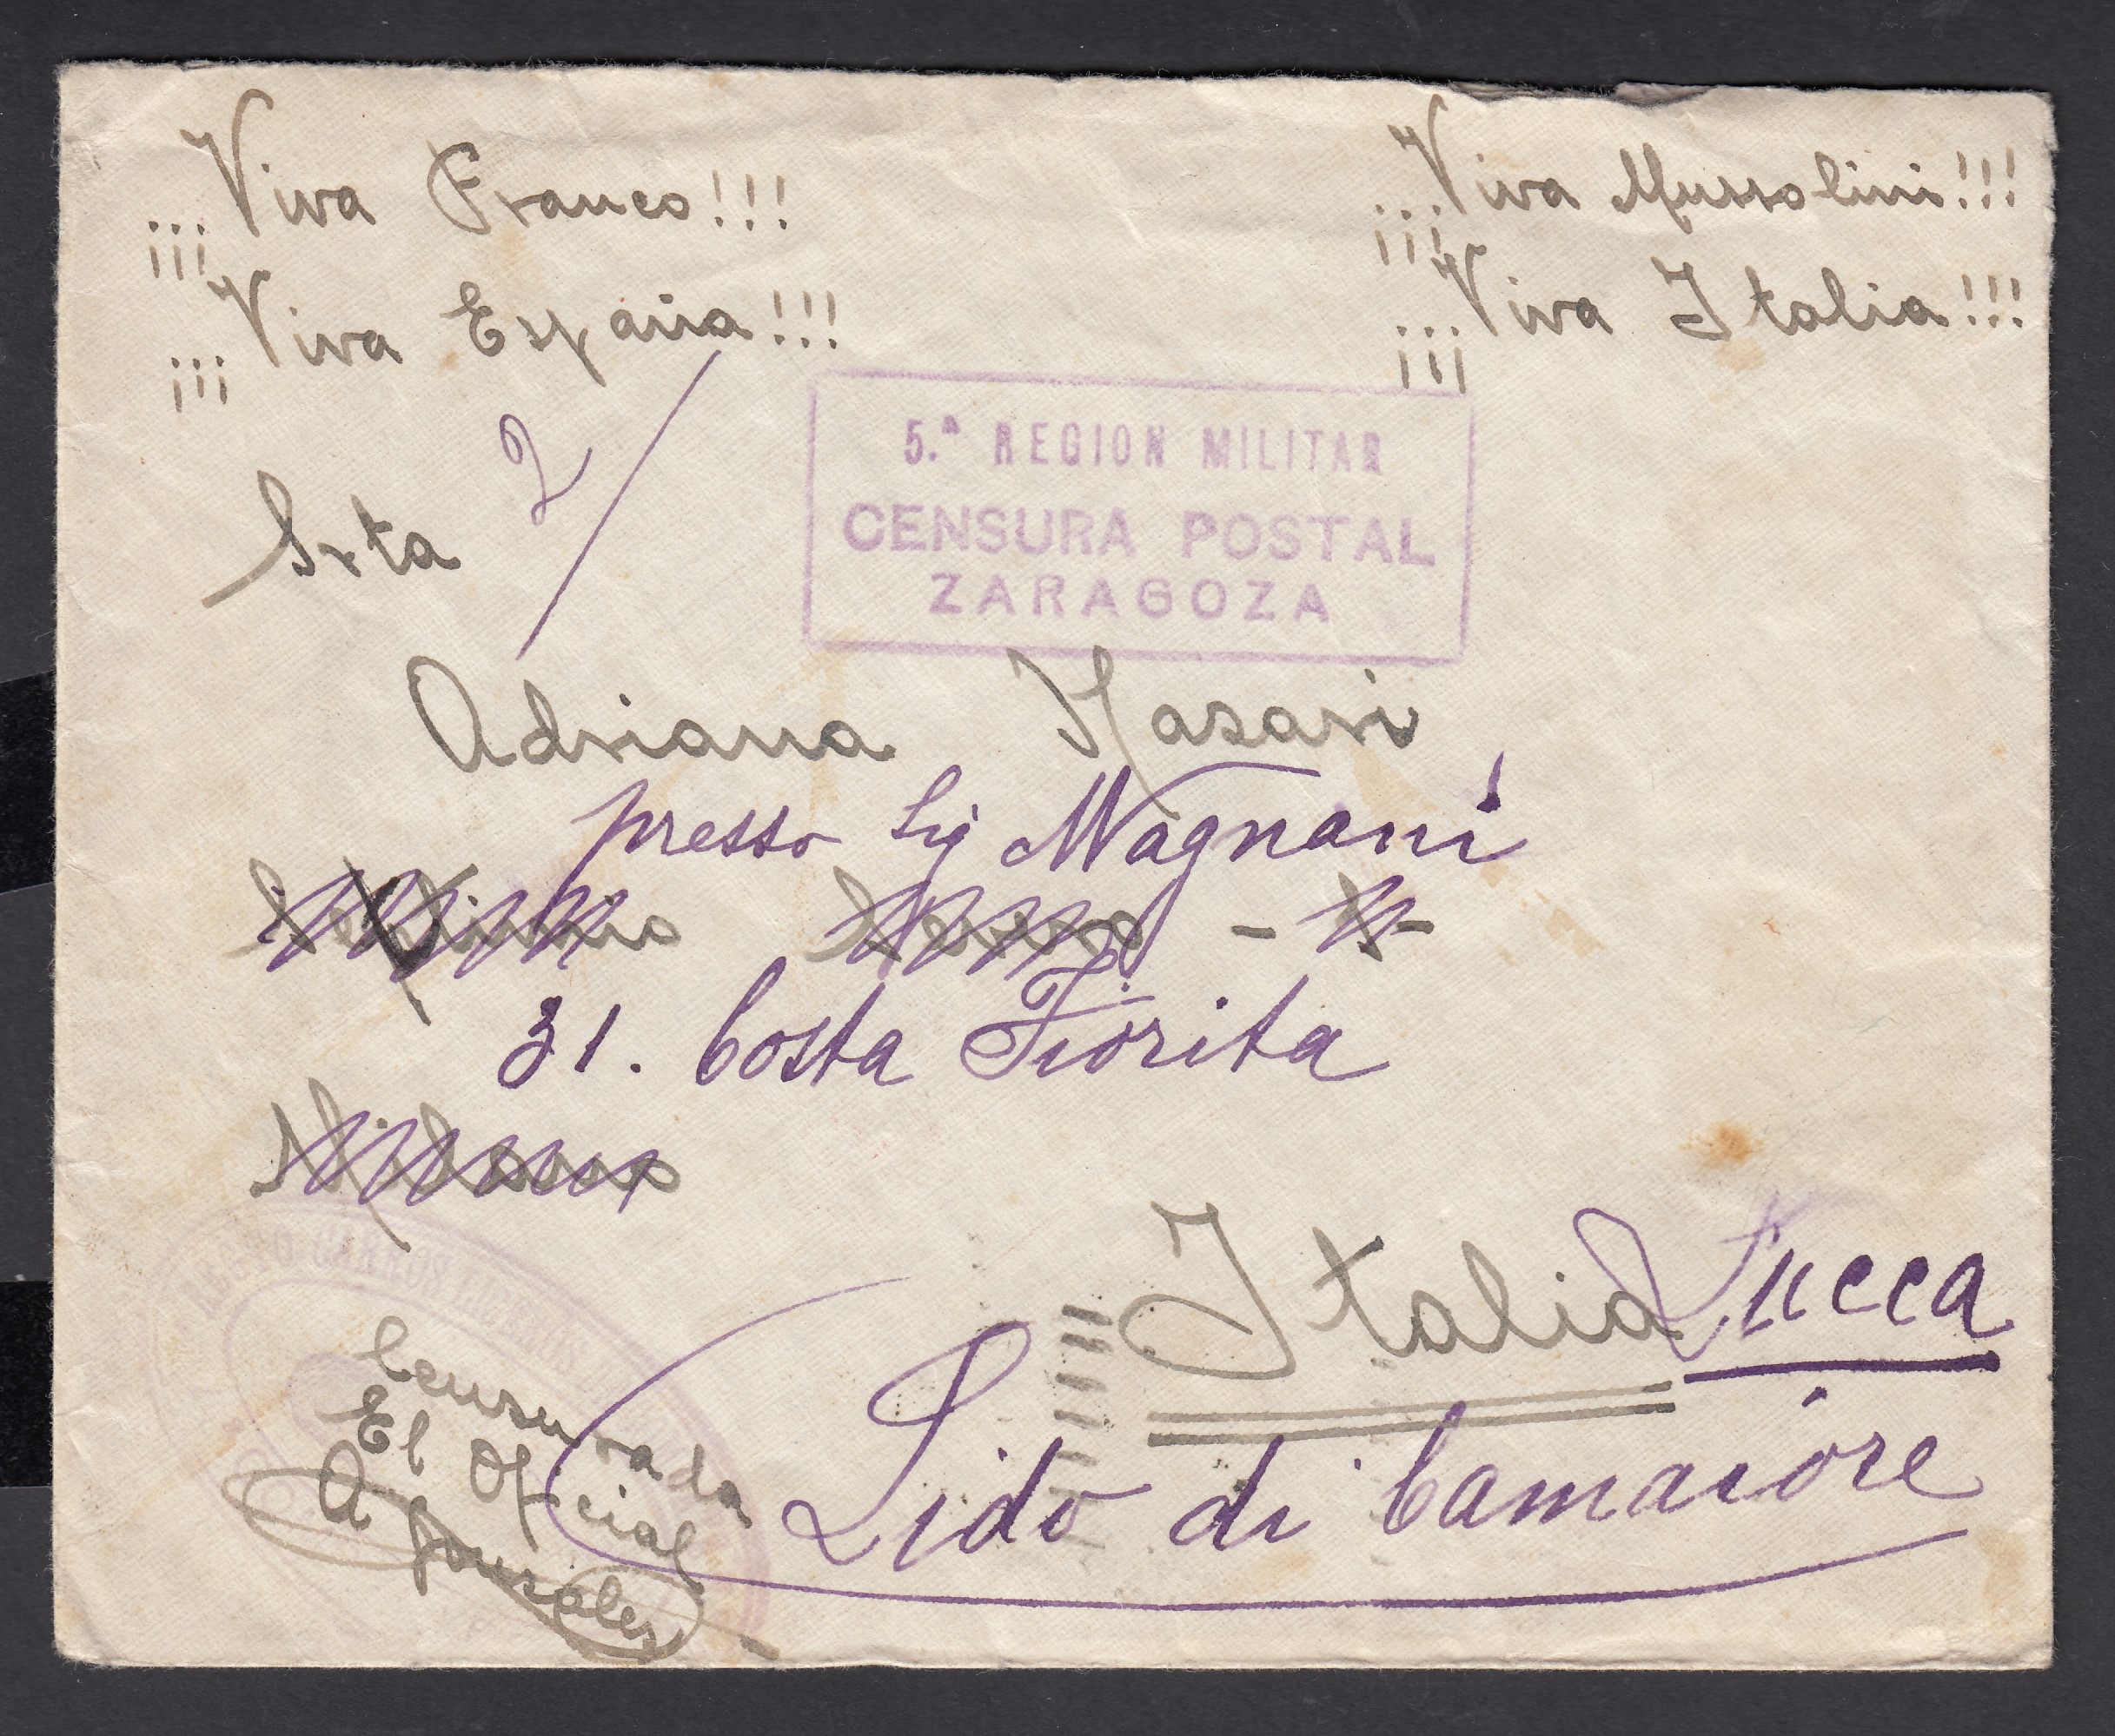 ¡¡¡Viva Franco!!!
¡¡¡Viva España!!!
¡¡¡Viva Mussolini!!!
¡¡¡Viva Italia!!!
2/
5.ª REGION MILITAR
CENSURA POSTAL
ZARAGOZA
Srta
Adriana
presso Sig Magnani
31. Costa Fiorita
Milano
Italia
Lucca
Lido di Camaiore
Censurada
El Oficial
A Gonzalez
CARROS